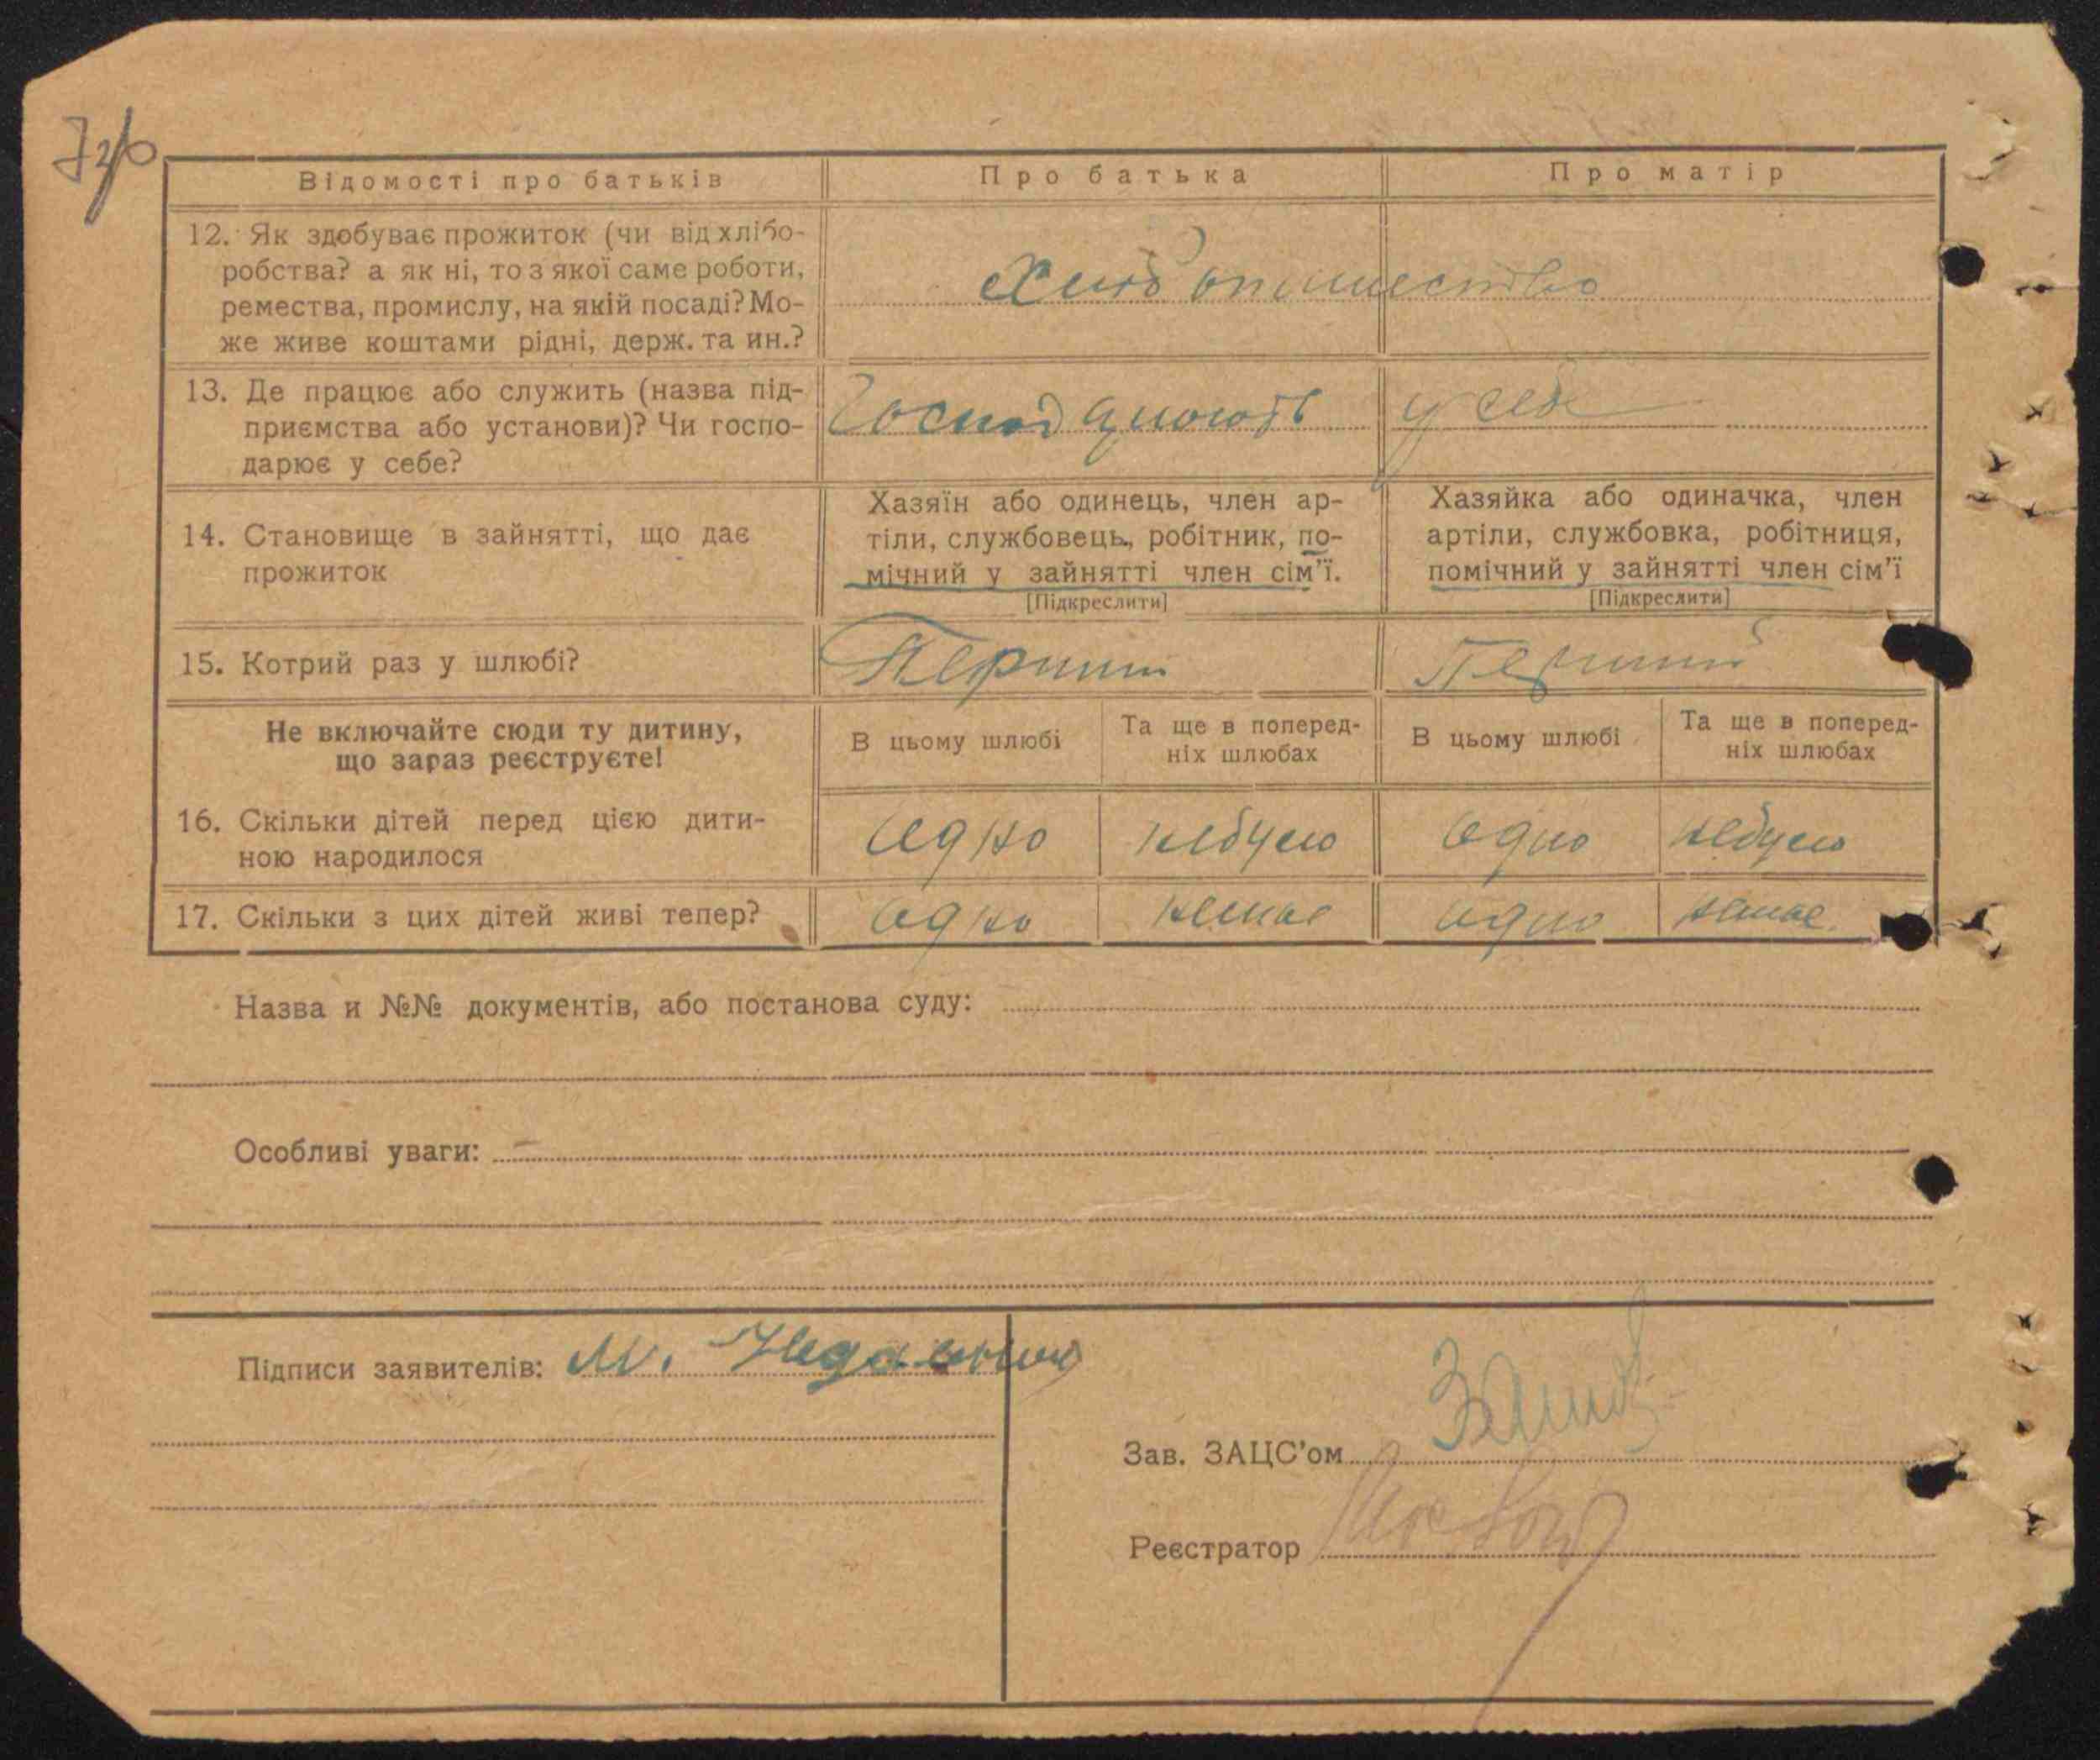 Відомості про батьків	Про батька	Про матір
12. Як здобуває прожиток (чи від хлібо-
робства? а як ні, то з якої саме роботи,
ремества, промислу, на якій посаді? Мо-
же живе коштами рідні, держ. та ин.?
13. Де працює або служить (назва під-
приємства або установи)? Чи госпо-
дарює у себе?
у себе
14. Становище в зайнятті, що дає
прожиток
Хазяїн або одинець, член ар-
тіли, службовець, робітник, по-
мічний у зайнятті член сім'ї.
[Підкреслити]
Хазяйка або одиначка, член
артіли, службовка, робітниця,
помічний у зайнятті член сім'ї
[Підкреслити]
15. Котрий раз у шлюбі?	Перший	Перший
Не включайте сюди ту дитину,
що зараз реєструєте!
В цьому шлюбі
Та ще в поперед-
ніх шлюбах
В цьому шлюбі
Та ще в поперед-
ніх шлюбах
16. Скільки дітей перед цією дити-
ною народилося
одно	небуло	одно	небуло
17. Скільки з цих дітей живі тепер?	одно	немає	одно	немає.
Назва и №№ документів, або постанова суду:
Особливі уваги: –
Підписи заявителів: М.
Зав. ЗАЦС'ом
Реєстратор